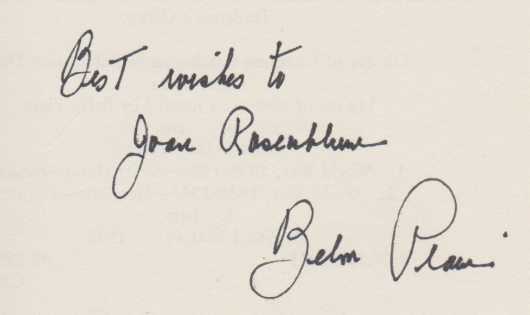 Best wishes to
Joan Rosenblum
Belva Plain